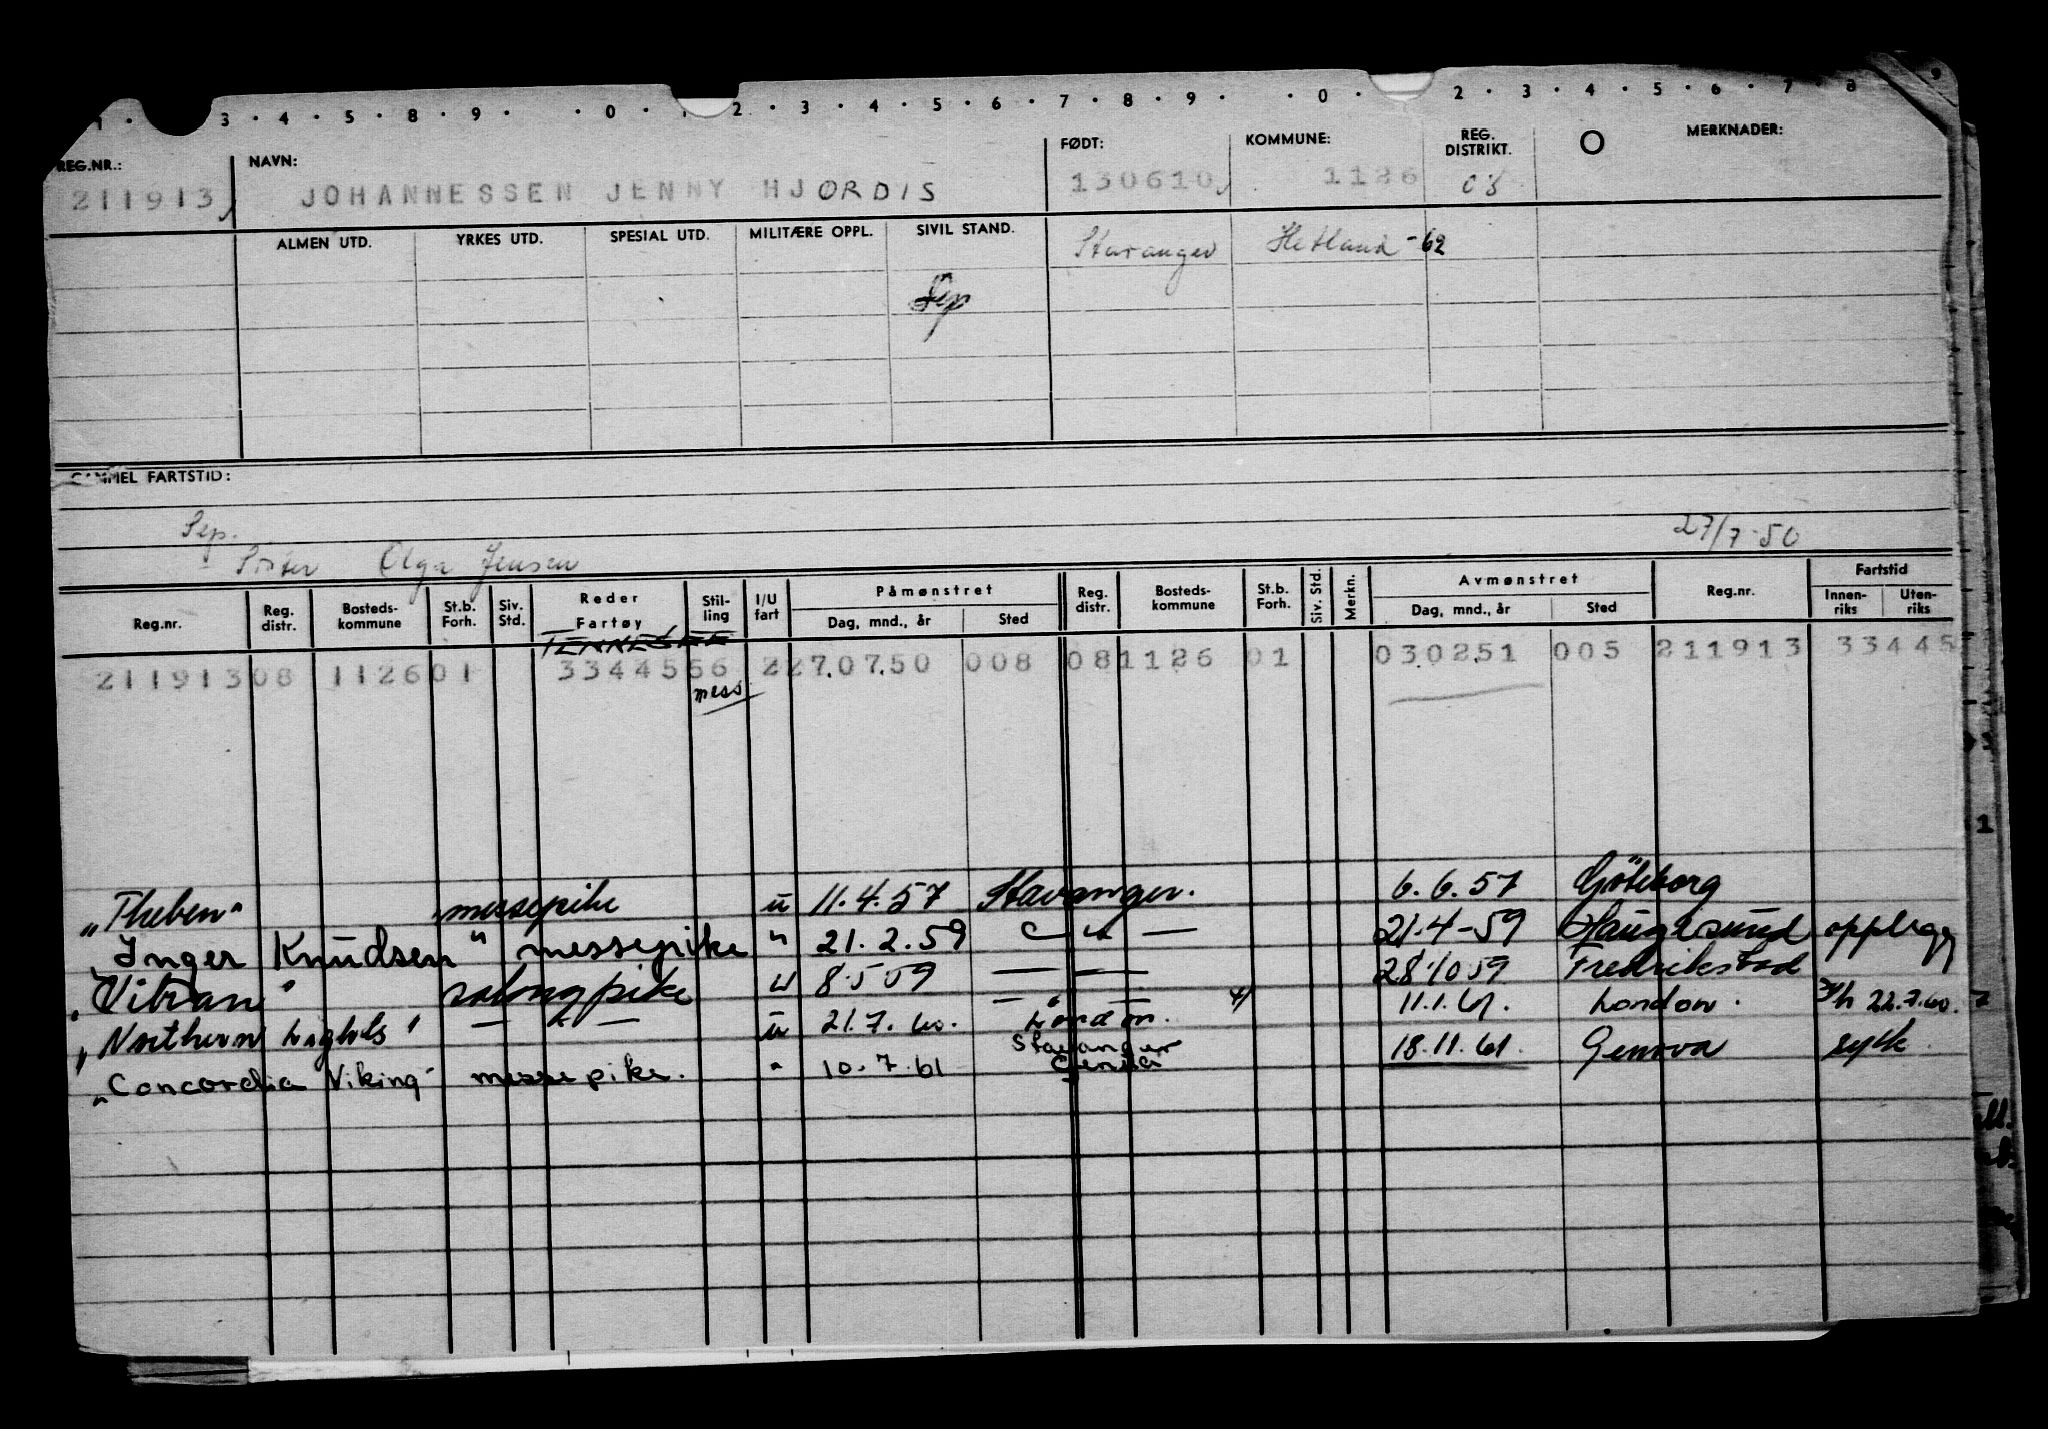 1 · 3 · 4 · 5 · 8 · 9 · · 0 · 1 2 · 3 · 4 · 5 · 6 · 7 · 8 · 9 · · 0 · 2 · 3 · 4 · 5 · 6 · 7 · 8 9
REG.NR.: NAVN: FØDT: KOMMUNE: REG. DISTRIKT. MERKNADER:
211913 JOHANNESSEN JENNY HJØRDIS 130610 1126 08
ALMEN UTD. YRKES UTD. SPESIAL UTD. MILITÆRE OPPL. SIVIL STAND. Stavanger Hetland -62
Sep
GAMMEL FARTSTID:
Sep. 27/7-50
Søster Olga Jensen
Reg.nr. Reg. distr. Bosteds-kommune St.b. Forh. Siv. Std. Reder Fartøy Stil-ling I/U fart Påmønstret Dag, mnd., år Sted Reg. distr. Bosteds-kommune St.b. Forh. Siv. Std. Merkn. Avmønstret Dag, mnd., år Sted Reg.nr. Fartstid Innen-riks Uten-riks
TENNESSEE
211913 08 1126 01 33445 56 2 27.07.50 008 08 1126 01 030251 005 211913 33445
mess
"Theben" messepike u 11.4.57 Stavanger. 6.6.57 Göteborg
"Inger Knudsen" messepike " 21.2.59 — " — 21.4-59 Haugesund opplegg
"Vitran" salongpike u 8.5.59 — — 28.10.59 Fredrikstad
"Northern Lights" — " — u 21.7.60. — " — London. 4) 11.1.61. London. 22.7.60.
"Concordia Viking" messepike. " 10.7.61 Stavanger Genua 18.11.61. Genova syk